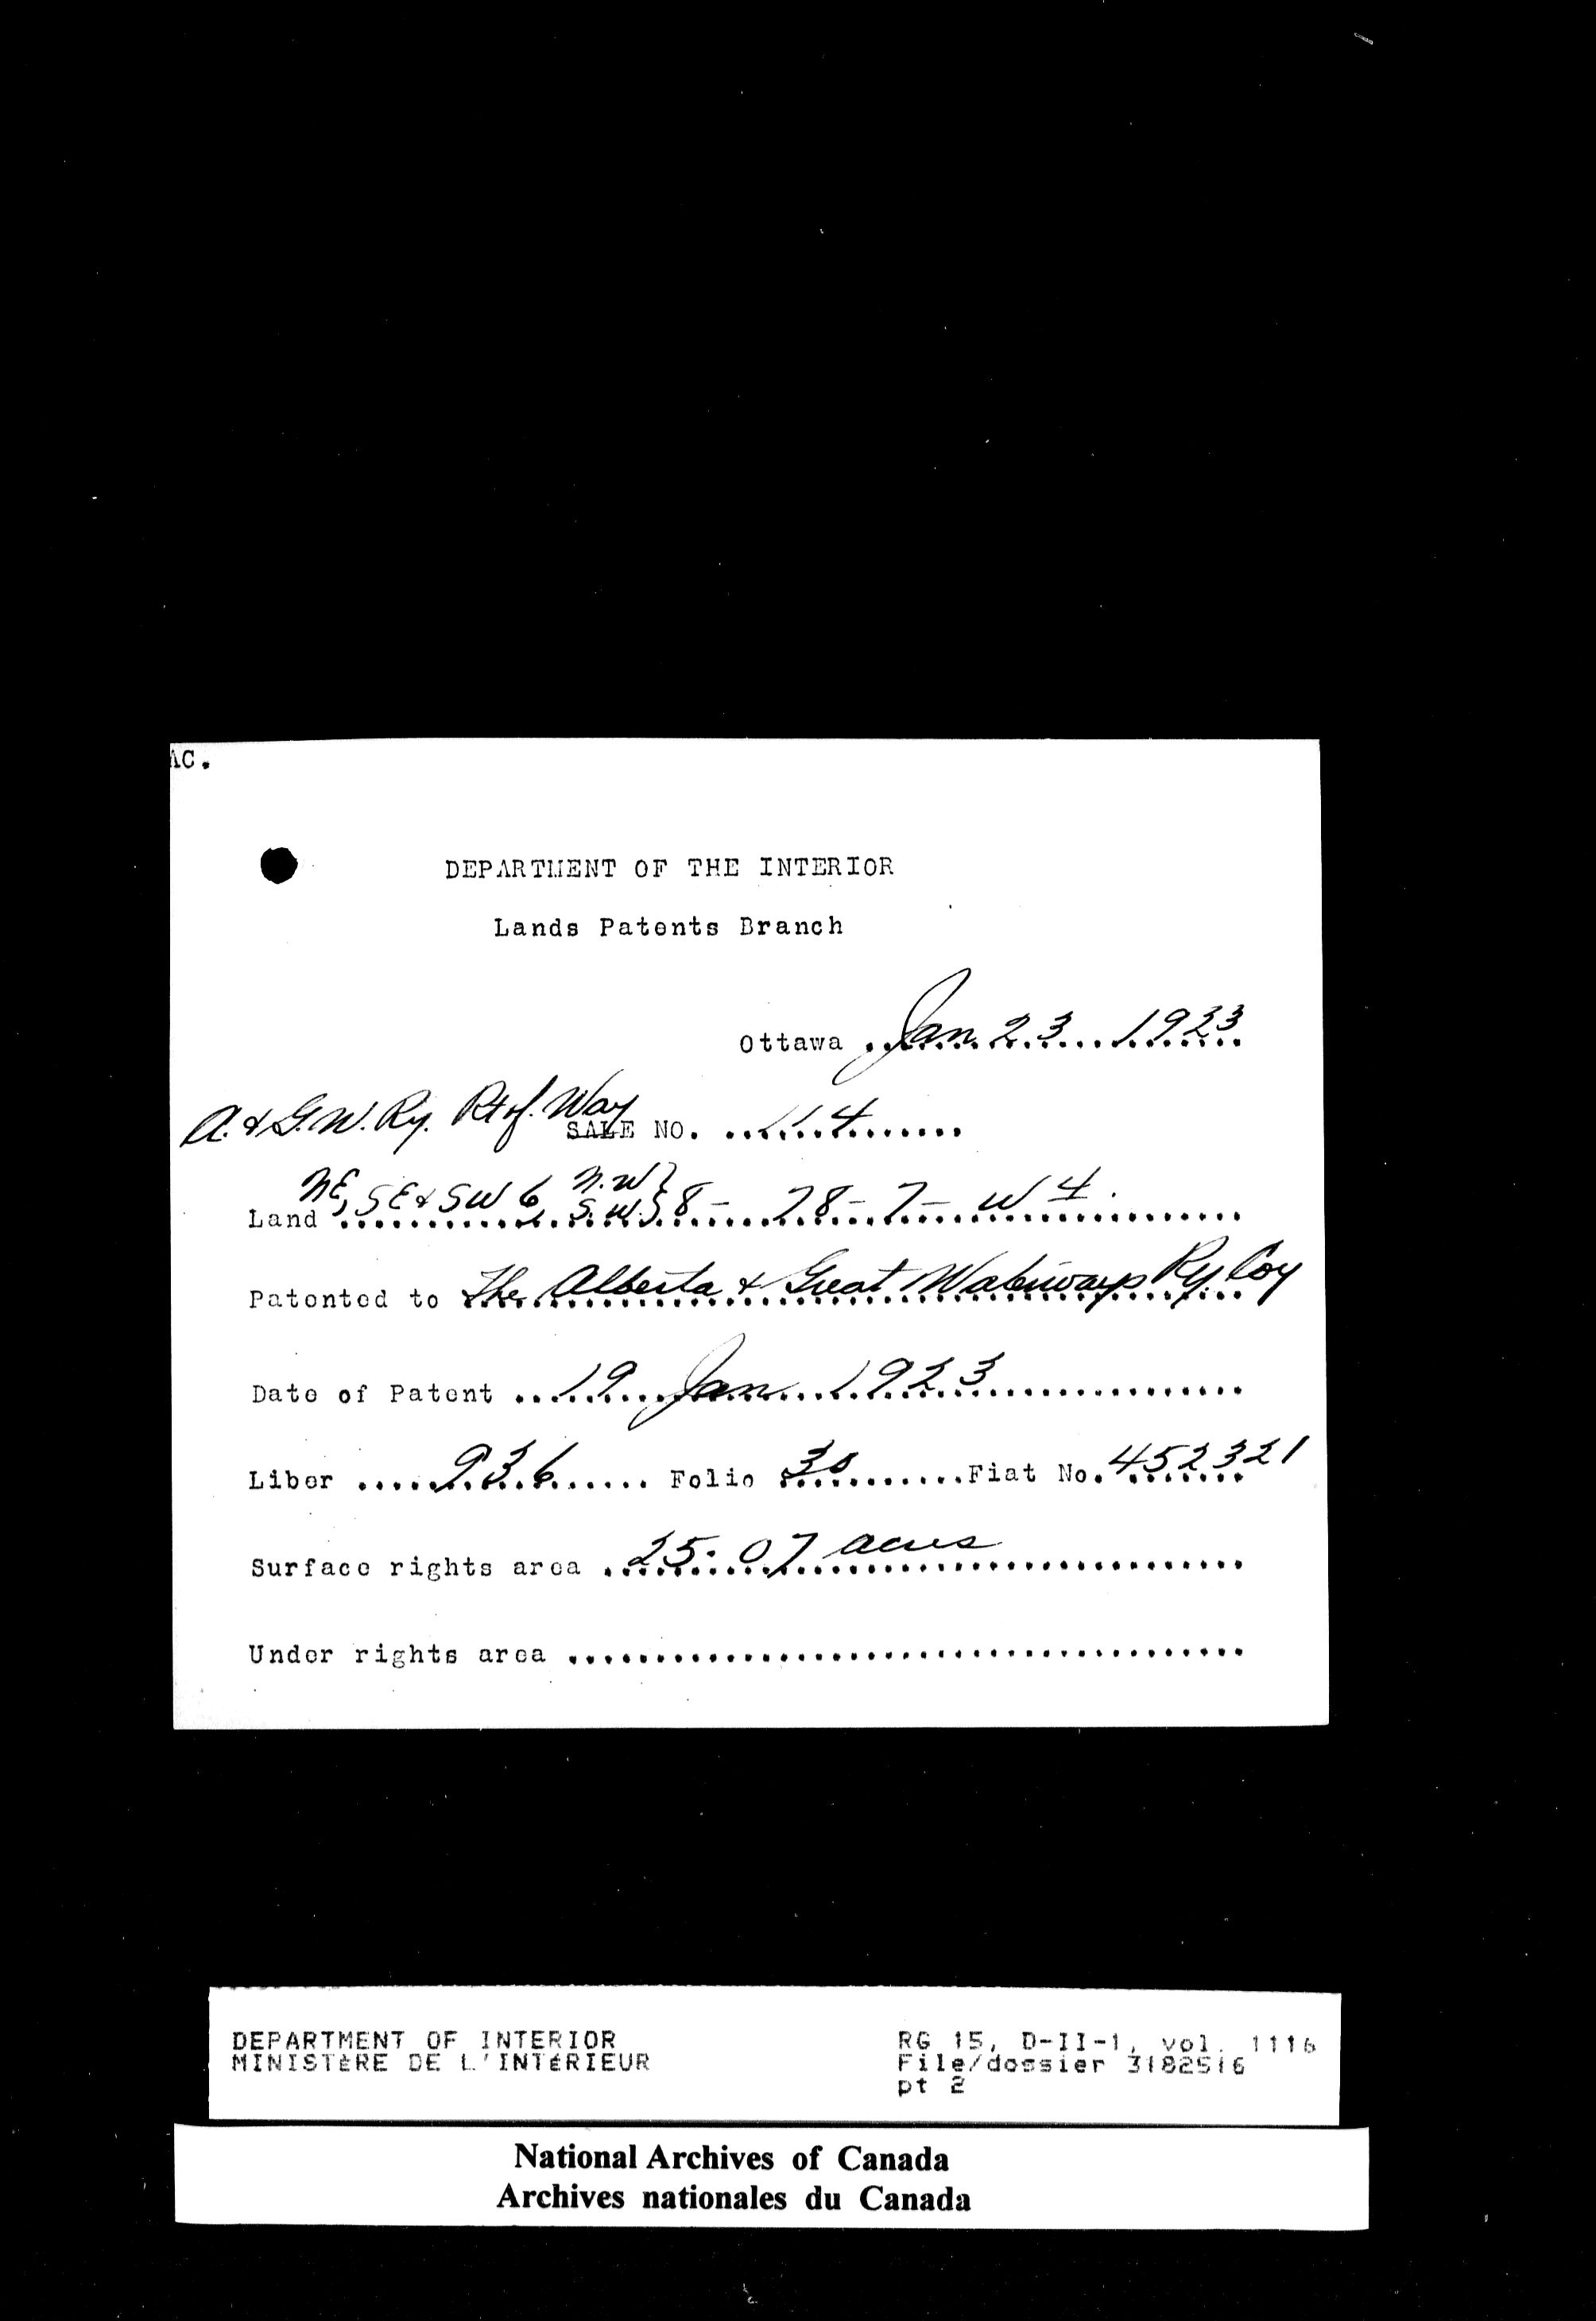 AC.
DEPARTMENT OF THE INTERIOR
Lands Patents Branch
Ottawa Jan 23 1923
A. & G. W. Ry. Rt of. Way SALE NO. 114
Land NE, SE & SW 6, N.W. S.W. } 8 - 78 - 7 - W 4.
Patented to The Alberta & Great Waterways Ry. Coy
Date of Patent 19 Jan 1923
Liber 936 Folio 30 Fiat No. 452321
Surface rights area 25.07 acres
Under rights area
DEPARTMENT OF INTERIOR
MINISTÈRE DE L'INTÉRIEUR
RG 15, D-II-1, vol. 1116
File/dossier 3182516
pt 2
National Archives of Canada
Archives nationales du Canada